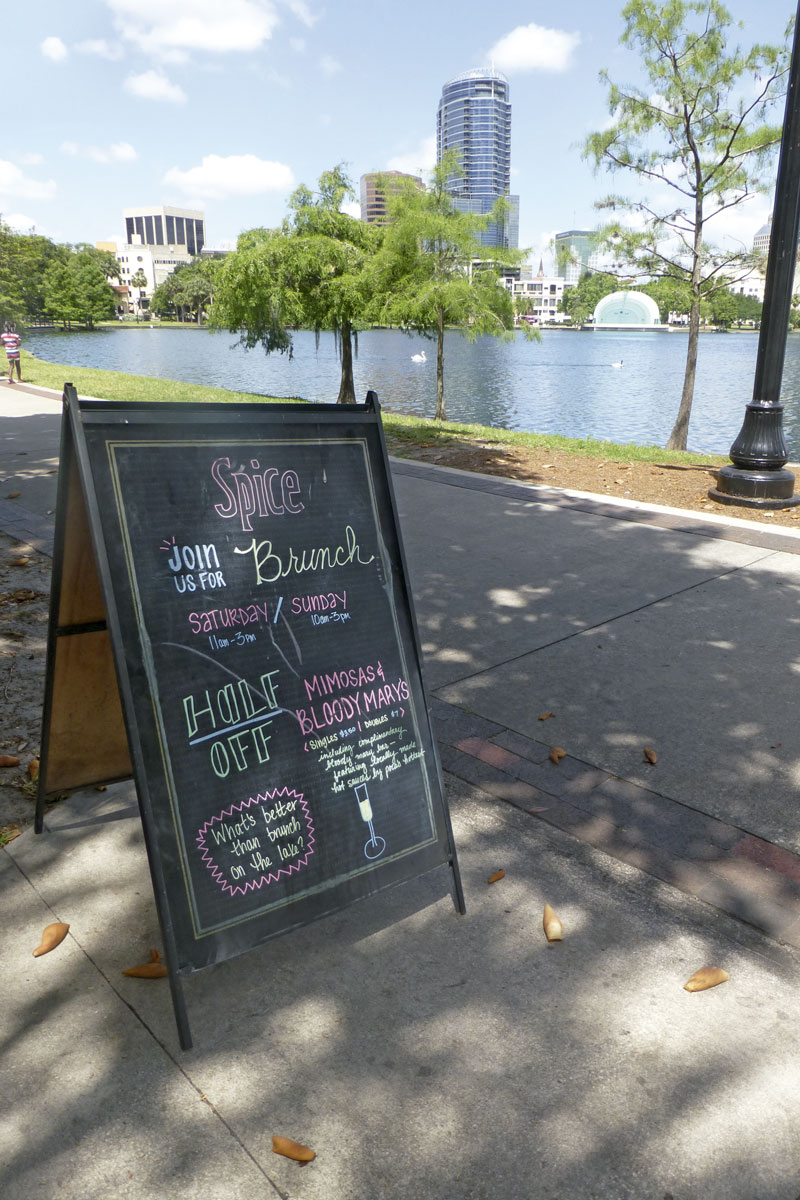 Spice
JOIN
US FOR
Brunch
SATURDAY / SUNDAY
11am-3pm 10am-3pm
HALF
OFF
MIMOSAS &
BLOODY MARY'S
< SINGLES $3.50 | DOUBLES $7 >
including complimentary
bloody mary bar -
featuring locally made
hot sauces by
What's better
than brunch
on the lake?